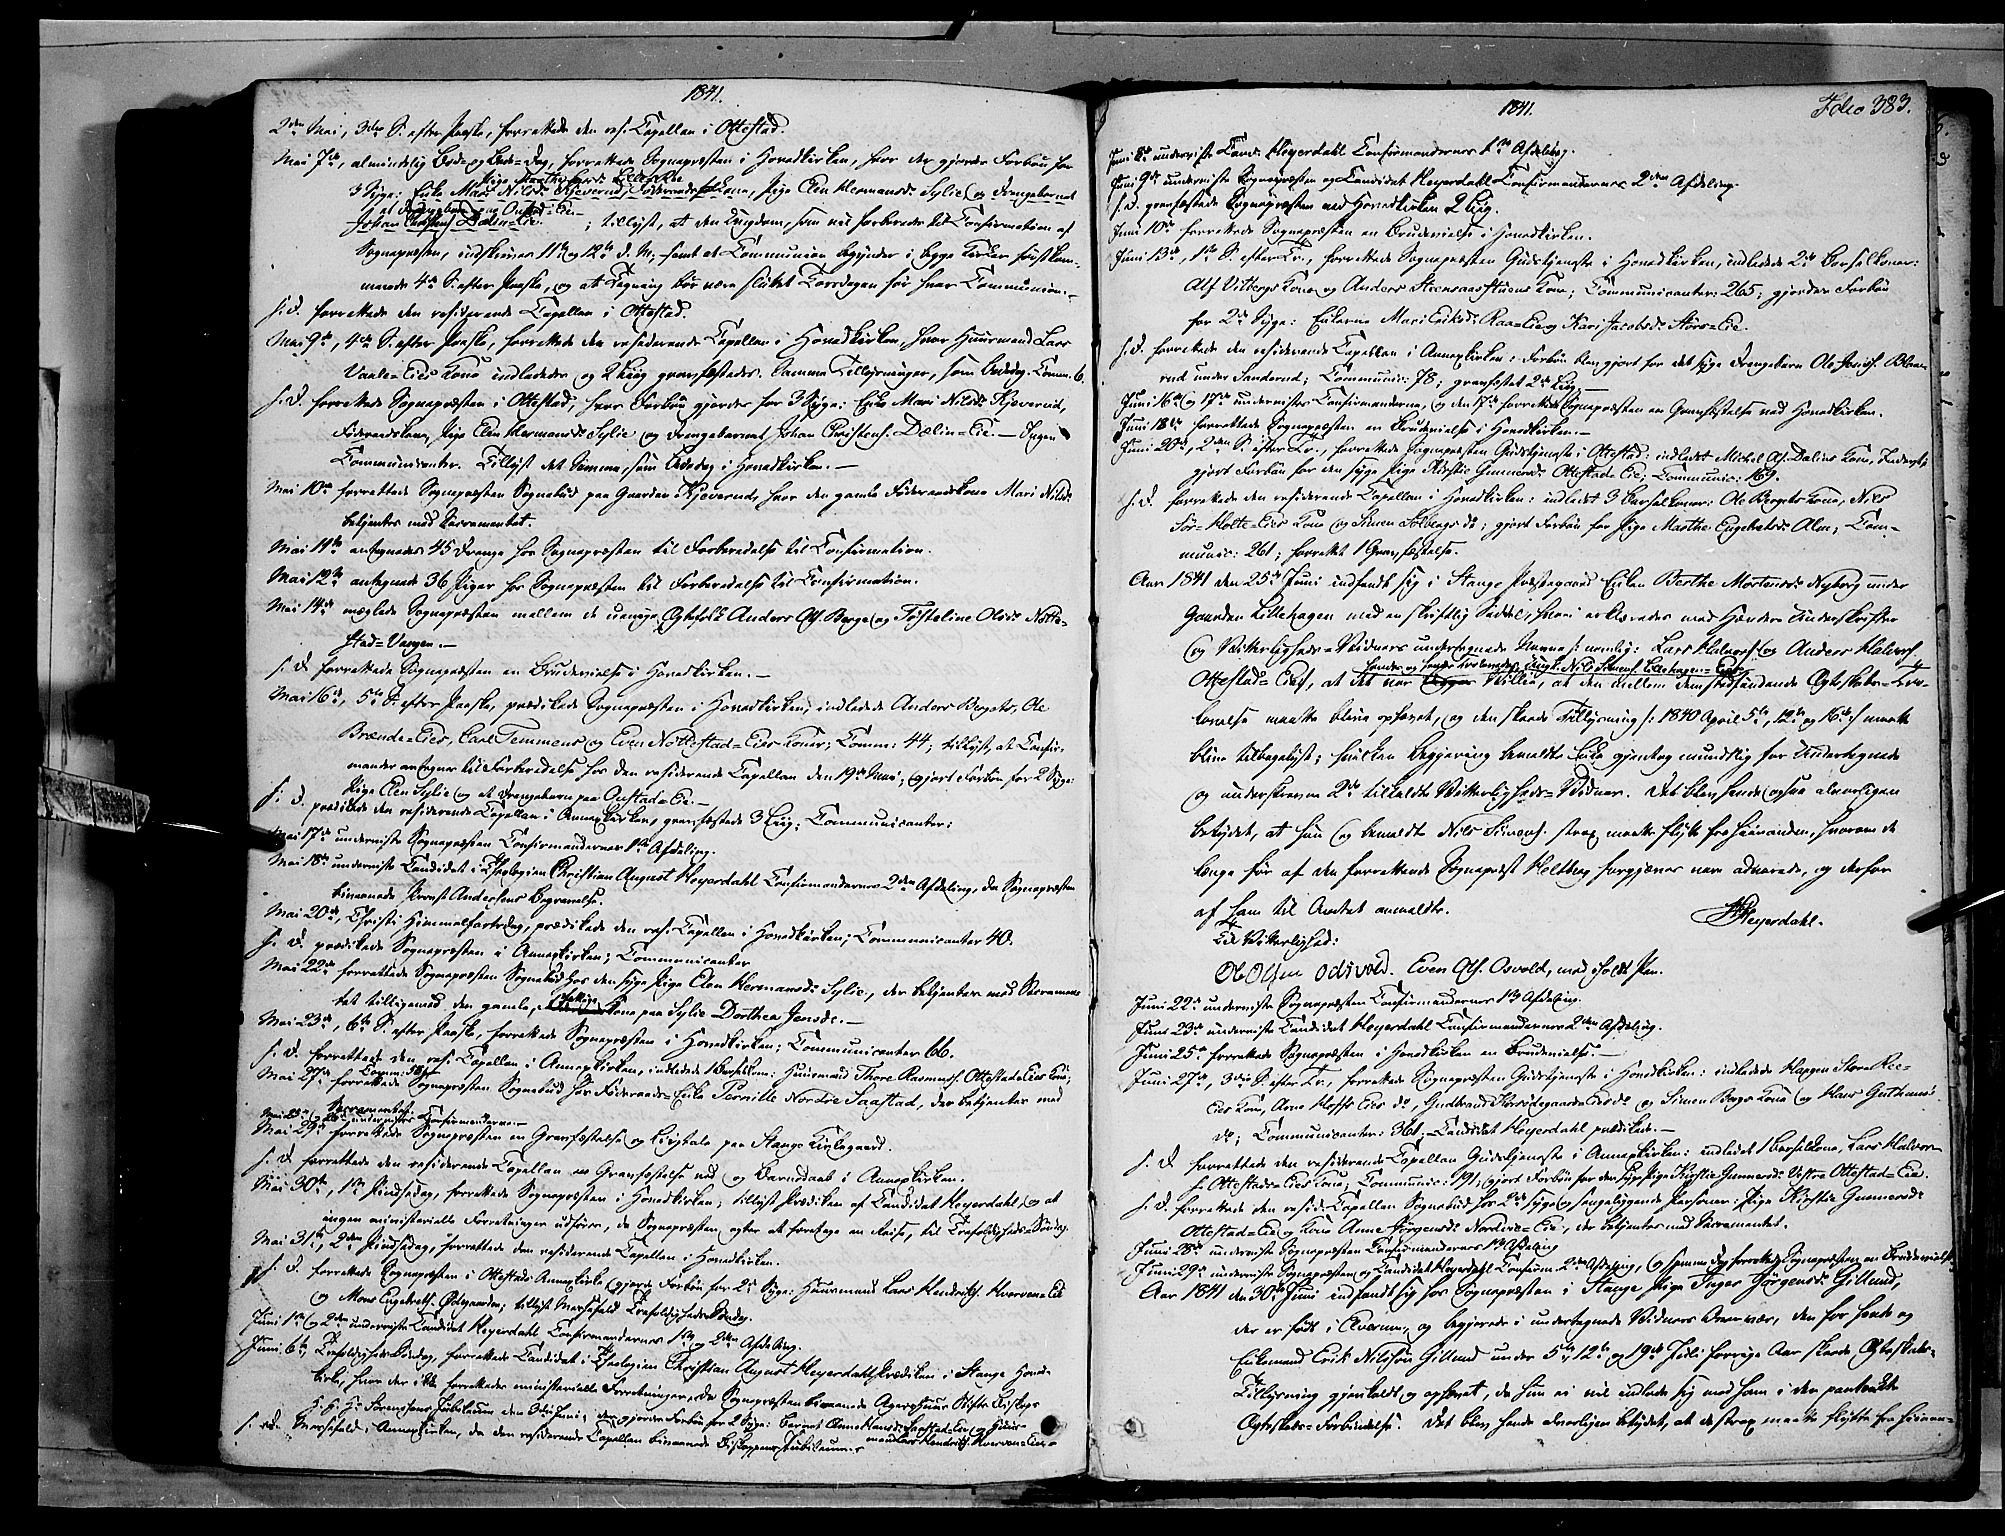 1841.
2den Mai, 3die S. efter Paaske, forrettede den res. Capellan i Ottestad.
Mai 7de, almindelig Bods- og Bede-Dag, forrettede Sognepræsten i Hovedkirken, hvor der gjordes Forbøn for
3 Syge: Enke Mari Nilsd. Kjeverud, Føderaadskone, Pige Elen Hermansd. Sylie og Drengebarnet
Johan Christens. Dælin-Eie; tillyst, at den Ungdom, som vil forberedes til Confirmation af
Sognepræsten, indskrives 11te og 12te d. M., samt at Communion begynder i begge Kirker førstkom-
mende 4de S. efter Paaske, og at Tegning bør være sluttet Torsdagen før hver Communion.
s. d. forrettede den residerende Capellan i Ottestad.
Mai 9de, 4de S. efter Paaske, forrettede den residerende Capellan i Hovedkirken, hvor Huusmand Lars
Vaale-Eies Kone indlededes og 2 Liig gravfæstedes. Samme Tillysninger, som Bededag. Comm. 6.
s. d. forrettede Sognepræsten i Ottestad, hvor Forbøn gjordes for 3 Syge: Enke Mari Nilsd. Kjeverud,
Føderaadskone, Pige Elen Hermansd. Sylie og Drengebarnet Johan Christens. Dælin-Eie. — Ingen
Communicanter. Tillyst det Samme, som Bededag i Hovedkirken. —
Mai 10de forrettede Sognepræsten Sognebud paa Gaarden Kjeverud, hvor den gamle Føderaadskone Mari Nilsd.
betjentes med Sacramentet.
Mai 11te antegnedes 45 Drenge hos Sognepræsten til Forberedelse til Confirmation.
Mai 12te antegnedes 36 Piger hos Sognepræsten til Forberedelse til Confirmation.
Mai 14de mæglede Sognepræsten mellem de uenige Egtefolk Anders Ols. Berge og Tosteline Olsd. Notte-
stad-Vangen. —
s. d. forrettede Sognepræsten en Brudevielse i Hovedkirken. —
Mai 16de, 5te S. efter Paaske, prædikede Sognepræsten i Hovedkirken, indledede Anders Bergets, Ole
Brænde-Eies, Carl Temmens og Even Nottestad-Eies Koner; Comm: 44; tillyst, at Confir-
mander antegnes til Forberedelse hos den residerende Capellan den 19de Mai; gjort Forbøn for 2 Syge:
Pige Elen Sylie og et Drengebarn paa Onstad-Eie. —
s. d. prædikede den residerende Capellan i Annexkirken, gravfæstede 3 Liig; Communicanter:
Mai 17de underviste Sognepræsten Confirmandernes 1ste Afdeling.
Mai 18de underviste Candidat i Theologien Christian August Heyerdahl Confirmandernes 2den Afdeling, da Sognepræsten
bivaanede Provst Andersens Begravelse.
Mai 20de, Christi Himmelfartsdag, prædikede den res. Capellan i Hovedkirken; Communicanter 40.
s. d. prædikede Sognepræsten i Annexkirken; Communicanter
Mai 22de forrettede Sognepræsten Sognebud hos den syge Pige Elen Hermansd. Sylie, der betjentes med Sacramen-
tet tilligemed den gamle, Kone paa Sylie Dorthea Jensd. —
Mai 23de, 6te S. efter Paaske, forrettede Sognepræsten i Hovedkirken; Communicanter 66.
s. d. forrettede den res. Capellan i Annexkirken, indledede 1 Barselkone: Huusmand Thore Rasmuss. Ottestad Eies Kone;
Mai 27de forrettede Sognepræsten Sognebud hos Føderaads-Enke Pernille Nordre Saastad, der betjentes med
Sacramentet.
Mai 29de forrettede Sognepræsten en Gravfæstelse og Liigtale paa Stange Kirkegaard.
s. d. forrettede den residerende Capellan en Gravfæstelse ved og Barnedaab i Annexkirken.
Mai 30te, 1ste Pindsedag, forrettede Sognepræsten i Hovedkirken; tillyst Prædiken af Candidat Heyerdahl, og at
ingen ministerielle Forretninger udføres, da Sognepræsten agter at foretage en Reise, til Trefoldigheds-Søndag.
Mai 31te, 2den Pindsedag, forrettede den residerende Capellan i Hovedkirken.
s. d. forrettede Sognepræsten i Ottestads Annexkirke, gjorde Forbøn for 2de Syge: Huusmand Lars Hendriks. Hvorven-Eie
og Mons Engebrets. Ødegaarden, tillyst Messefald Trefoldigheds-Søndag.
Juni 1ste og 2den underviste Candidat Heyerdahl Confirmandernes 1ste og 2den Afdeling.
Juni 6te, Trefoldigheds Søndag, forrettede Candidat i Theologien Christian August Heyerdahl Prædiken i Stange Hoved-
kirke, hvor der ikke forrettedes ministerielle Forretninger, da Sognepræsten bivaanede Aggershuus Stifts Biskops
Jubilæum den 3die Juni; der gjordes Forbøn for 2 Syge: Barnet Anne Hansd. Saastad-Eie og Huus-
mand Lars Hendriks. Hvorven-Eie.
s. d. Messefald i Annexkirken, da den residerende Capellan bivaanede Biskoppens Jubilæum.

1841.
Folio 383.
Juni 8de underviste Cand. Heyerdahl Confirmandernes 1ste Afdeling.
Juni 9de underviste Sognepræsten og Candidat Heyerdahl Confirmandernes 2den Afdeling.
s. d. gravfæstede Sognepræsten ved Hovedkirken 2 Liig.
Juni 10de forrettede Sognepræsten en Brudevielse i Hovedkirken.
Juni 13de, 1ste S. efter Tr., forrettede Sognepræsten Gudstjeneste i Hovedkirken, indledede 2de Barselkoner:
Alf Vilbergs Kone og Anders Steensaasstuens Kone; Communicanter: 265; gjordes Forbøn
for 2de Syge: Enkerne Mari Eriksd. Raa-Eie og Kari Jacobsd. Størs-Eie.
s. d. forrettede den residerende Capellan i Annexkirken; Forbøn blev gjort for det syge Drengebarn Ole Jonss.
rud under Sanderud; Communic: 78; gravfæstet 2de Liig. —
Juni 16de og 17de undervistes Confirmanderne, og den 17de forrettede Sognepræsten en Gravfæstelse ved Hovedkirken.
Juni 18de forrettede Sognepræsten en Brudevielse i Hovedkirken. —
Juni 20de, 2den S. efter Tr., forrettede Sognepræsten Gudstjeneste i Ottestad: indledet Michel Ols. Dælins Kone,
gjort Forbøn for den syge Pige Kirstie Gunnersd. Ottestads Eie; Communic: 169.
s. d. forrettede den residerende Capellan i Hovedkirken: indledet 3 Barselkoner: Ole Bergets Kone, Nils
Tør-Holte-Eies Kone og Simen Solbergs do; gjort Forbøn for Pige Marthe Engebretsd. Alm; Com-
munic: 261; forrettet 1 Gravfæstelse.
Aar 1841 den 25de Juni indfandt sig i Stange Præstegaard Enken Berthe Mortensd. Nyborg under
Gaarden Lillehagen med en skriftlig Seddel, hvori erklæredes med Hændes Underskrifter
og Vitterligheds-Vidners undertegnede Navne /: nemlig: Lars Halvors. og Anders Halvors.
Ottestad-Eie :/, at det var hendes og hendes trolovedes, Ungk. Nils Simens. Lillehagen-Eies Villie, at den mellem dem stedfindende Egteskabs-Trolo-
velse maatte blive ophævet, og den skeede Tillysning /: 1840 April 5te, 12te og 16de :/ maatte
blive tilbagelyst; hvilken Begjæring bemeldte Enke gjentog mundtlig for Undertegnede
og underskrevne 2de tilkaldte Vitterligheds-Vidner. Det blev hende ogsaa alvorligen
betydet, at hun og bemeldte Nils Simens. strax maatte flytte fra hinanden, hvorom de
længe før af den forrettende Sognepræst Heltberg forgjæves vare advarede, og derfor
af ham til Amtet anmeldte.
Heyerdahl.
Til Vitterlighed:
Ole Olsen Odsvold. Even Ols. Osvold, med iholdt Pen.
Juni 22de underviste Sognepræsten Confirmandernes 1ste Afdeling.
Juni 23de underviste Candidat Heyerdahl Confirmandernes 2den Afdeling.
Juni 25de forrettede Sognepræsten i Hovedkirken en Brudevielse. —
Juni 27de, 3die S. efter Tr., forrettede Sognepræsten Gudstjeneste i Hovedkirken: indledede Hagen Store-Ree-
Eies Kone, Arne Hoffs Eies do, Gudbrand Korsødegaarden Eies do og Simen Bergs Kone og Hans Guthus's
do; Communicanter: 361; Candidat Heyerdahl prædikede. —
s. d. forrettede den residerende Capellan Gudstjeneste i Annexkirken: indledet 1 Barselkone, Lars Halvor-
s. Ottestads-Eies Kone; Communic: 191; gjort Forbøn for den syge Pige Kirstie Gunnersd. Vestre Ottestad-Eie.
s. d. forrettede den resid. Capellan Sognebud hos 2de syge og sengeliggende Personer: Pige Kirstie Gunnersd.
Ottestad-Eie og Kone Anne Jørgensd. Nordvie-Eie, der betjentes med Sacramentet.
Juni 28de underviste Sognepræsten Confirmandernes 1ste Afdeling
Juni 29de underviste Sognepræsten og Candidat Heyerdahl Confirm. 2den Afdeling, og samme Dag forrettede Sognepræsten en Brudevielse.
Aar 1841 den 30te Juni indfandt sig hos Sognepræsten i Stange Pige Inger Jørgensd. Gillund,
der er født i Elverum, og begjerede i undertegnede Vidners Nærvær, den for hende og
Enkemand Erik Nilssøn Gillund under 5te, 12te og 19de Juli forrige Aar skeede Egteskabs-
Tillysning gjenkaldt og ophævet, da hun ei vil indlade sig med ham i den paatænkte
Egteskabs-Forbindelse. Det blev hende alvorligen betydet, at de strax maatte flytte fra hinan-